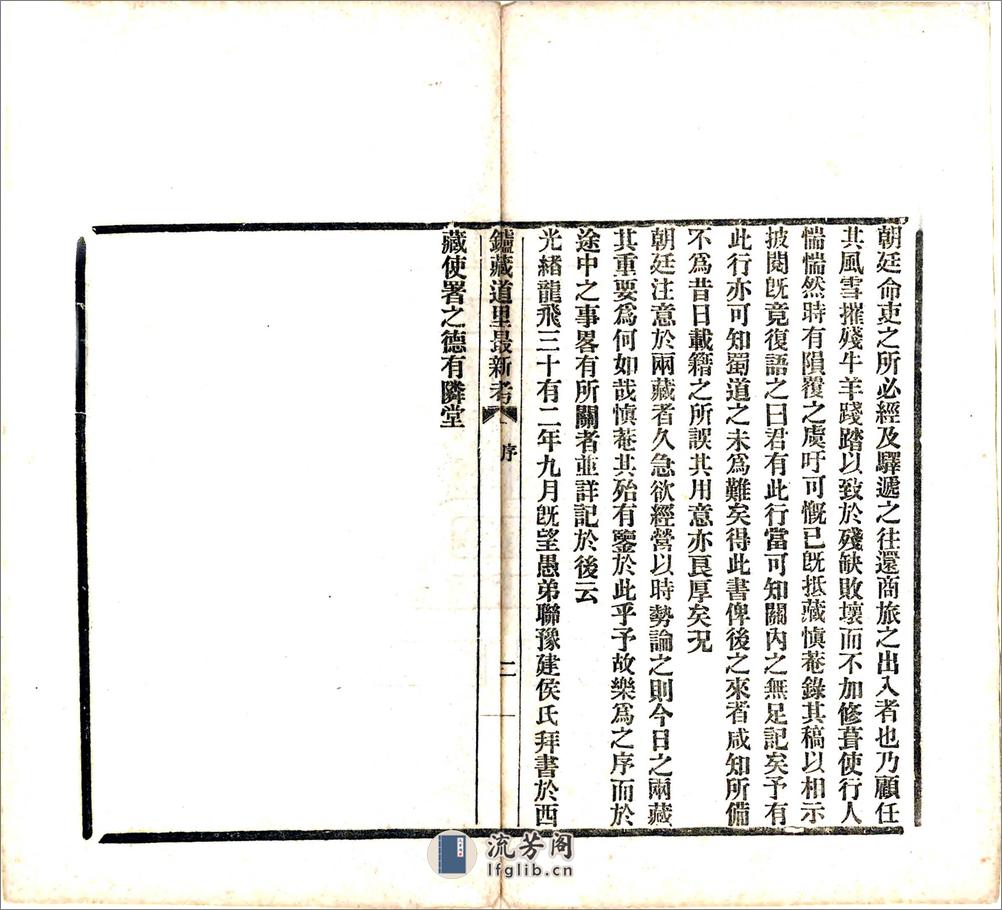 朝廷命吏之所必經及驛遞之往還商旅之出入者也乃顧任
其風雪摧殘牛羊踐踏以致於殘缺敗壞而不加修葺使行人
惴惴然時有隕覆之虞吁可慨已旣抵藏慎菴錄其稿以相示
披閱旣竟復語之曰君有此行當可知關內之無足記矣予有
此行亦可知蜀道之未爲難矣得此書俾後之來者咸知所備
不爲昔日載籍之所誤其用意亦良厚矣况
朝廷注意於兩藏者久急欲經營以時勢論之則今日之兩藏
其重要爲何如哉慎菴其殆有鑒於此乎予故樂爲之序而於
途中之事畧有所關者並詳記於後云
光緒龍飛三十有二年九月旣望愚弟聯豫建侯氏拜書於西
鑪藏道里最新考 序 二
藏使署之德有隣堂
流芳阁
lfglib.cn